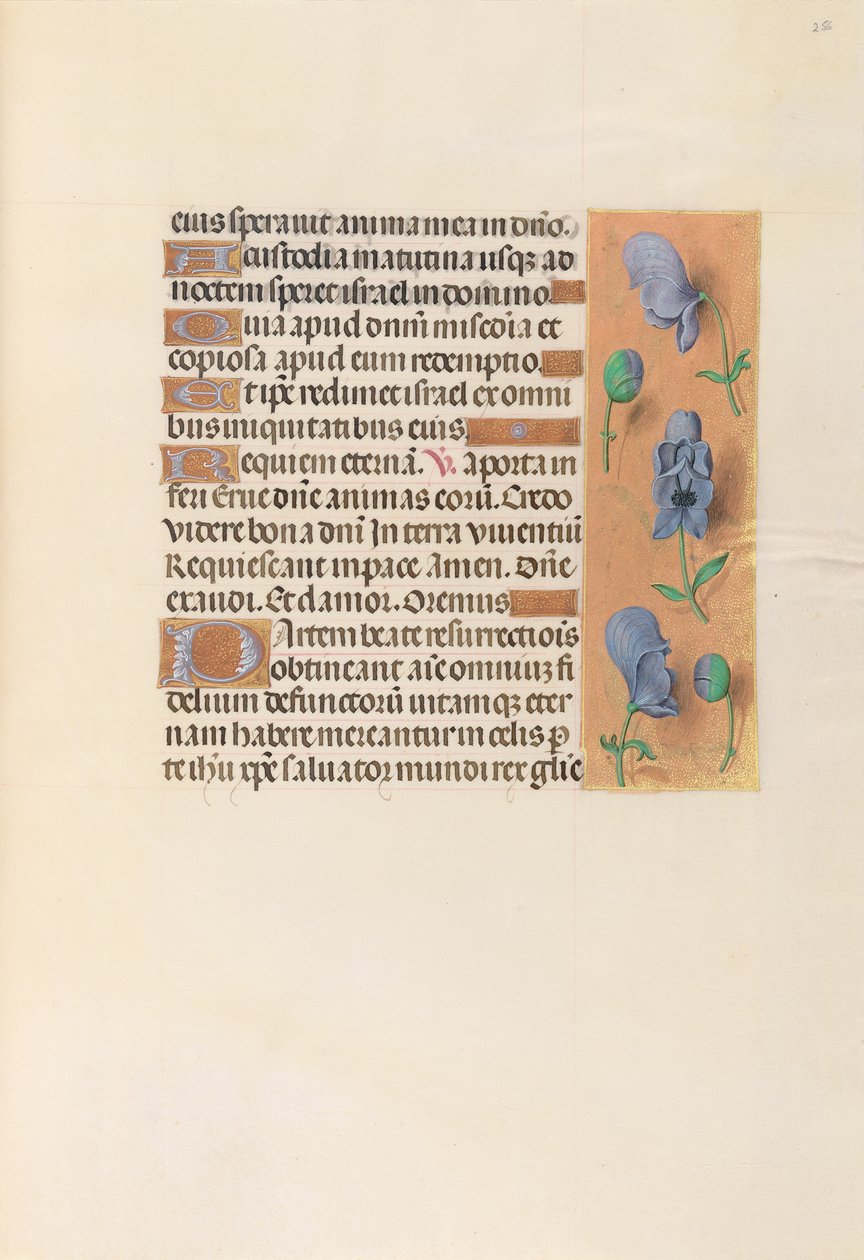 256
eius sperauit anima mea in dño.
A custodia matutina usqꝫ ad
noctem speret israel in domino.
Quia apud dnm̄ misc̄dia et
copiosa apud eum redemptio.
Et ip̄e redimet israel ex omni
bus iniquitatibus eius.
Requiem eternā. V. A porta in
feri Erue dn̄e animas eorū. Credo
videre bona dnī In terra viuentiū
Requiescant in pace Amen. Dn̄e
exaudi. Et clamor. Oremus
Partem beate resurrectiōis
obtineant aīe omniuꝫ fi
delium defunctorū uitamqꝫ eter
nam habere mereantur in celis ꝑ
te ihū xp̄e saluator mundi rex gl̄ie